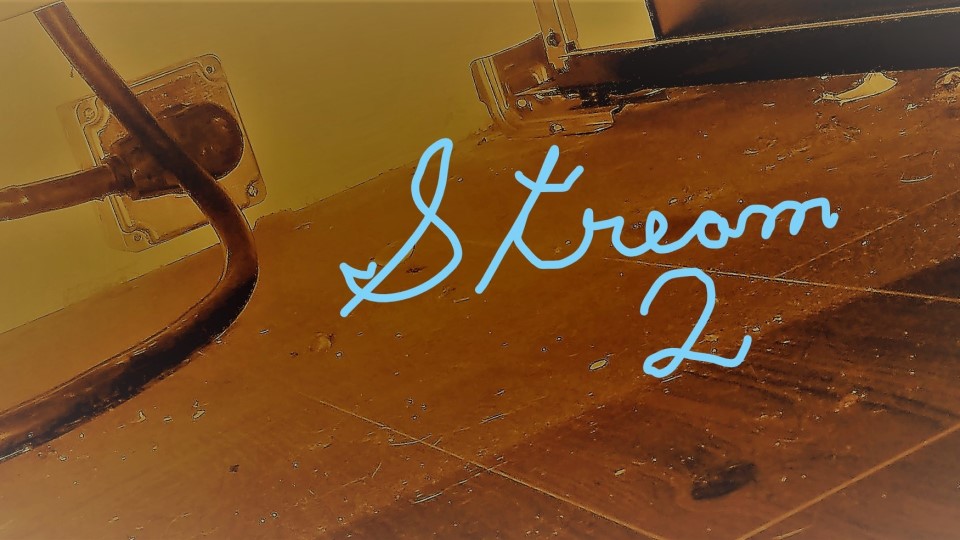 Stream
2